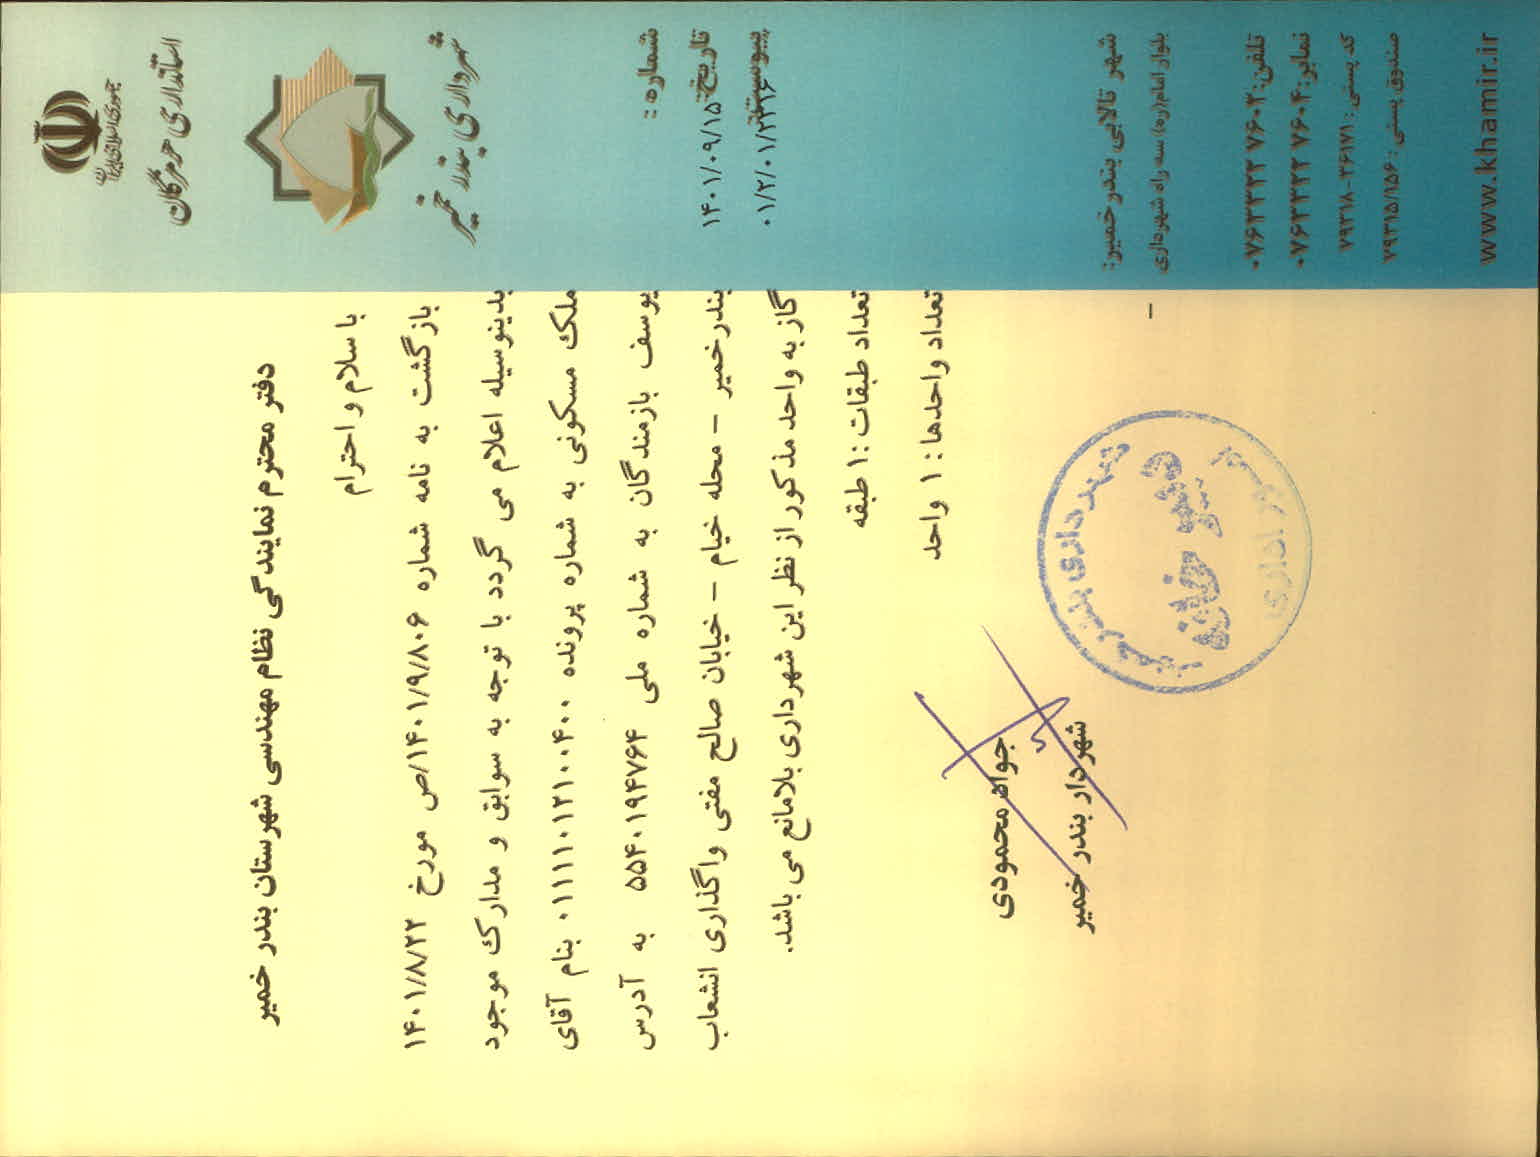 جمهوری اسلامی ایران
استانداری هرمزگان
شهرداری بندر خمیر
شماره :
تاریخ: ۱۴۰۱/۰۹/۱۵
پیوست:
دفتر محترم نمایندگی نظام مهندسی شهرستان بندر خمیر
با سلام و احترام
بازگشت به نامه شماره ۱۴۰۱/۹/۸۰۶/ص مورخ ۱۴۰۱/۸/۲۲
بدینوسیله اعلام می گردد با توجه به سوابق و مدارک موجود
ملک مسکونی به شماره پرونده ۰۱۱۱۱۰۱۲۱۰۰۴۰۰ بنام آقای
یوسف بازمندگان به شماره ملی ۵۵۴۰۱۹۴۷۶۴ به آدرس
بندرخمیر - محله خیام - خیابان صالح مفتی واگذاری انشعاب
گاز به واحد مذکور از نظر این شهرداری بلامانع می باشد.
تعداد طبقات :۱ طبقه
تعداد واحدها : ۱ واحد
جواد محمودی
شهردار بندر خمیر
شهرداری بندر خمیر
دبیرخانه
امور اداری
شهر تالابی بندر خمیر:
بلوار امام(ره) سه راه شهرداری
تلفن: ۰۷۶۳۳۳۲ ۷۶۰۲
نمابر: ۰۷۶۳۳۳۲ ۷۶۰۴
کد پستی: ۷۹۳۱۸-۳۶۱۷۱
صندوق پستی: ۷۹۳۱۵/۱۵۶
www.khamir.ir